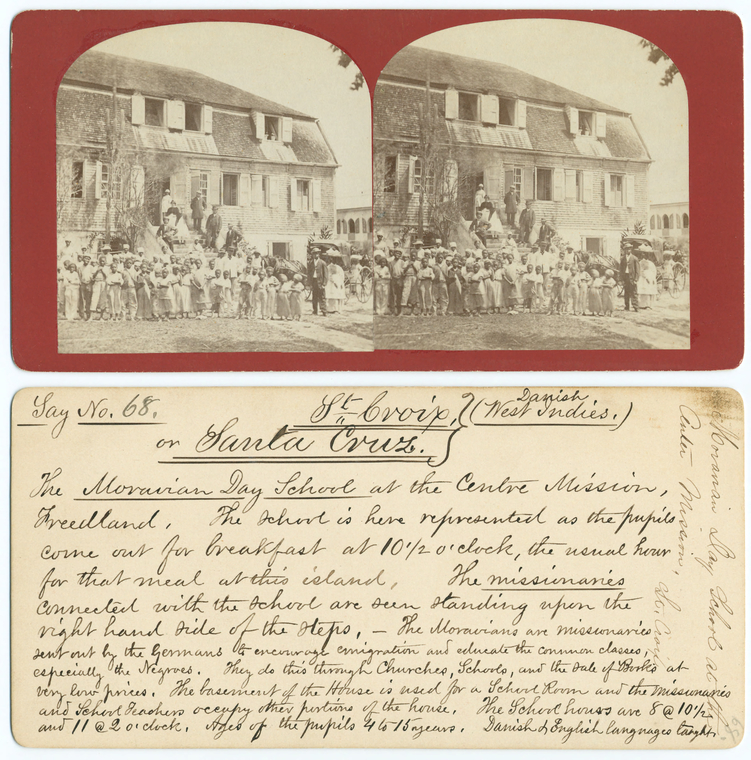 Gay No. 68.
St. Croix, (Danish West Indies.)
or Santa Cruz.
The Moravian Day School at the Centre Mission,
Freedland. The School is here represented as the pupils
come out for breakfast at 10 1/2 o'clock, the usual hour
for that meal at this island. The missionaries
connected with the School are seen standing upon the
right hand side of the steps. — The Moravians are missionaries
sent out by the Germans to encourage emigration and educate the common classes,
especially the Negroes. They do this through Churches, Schools, and the sale of Books at
very low prices. The basement of the House is used for a School Room and the missionaries
and School Teachers occupy other portions of the house. The School hours are 8 @ 10 1/2
and 11 @ 2 o'clock. Ages of the pupils 4 to 15 years. Danish & English languages taught.
Moravian Day School at the
Centre Mission, St. Croix
68